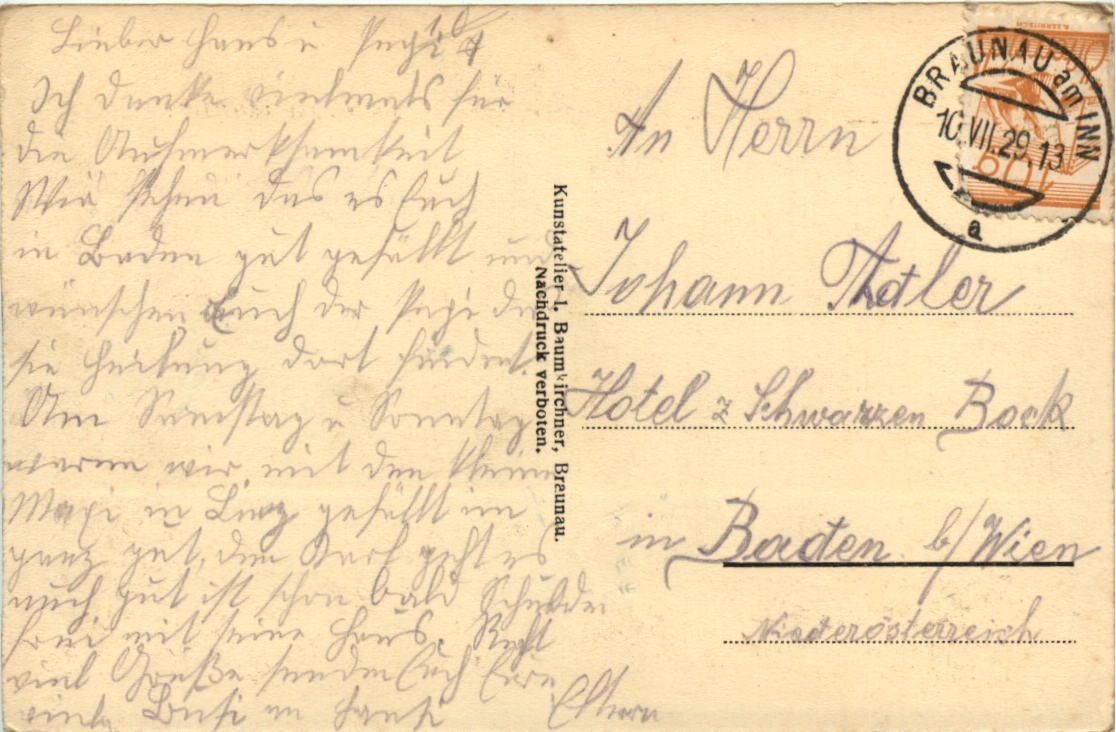 Lieber Hans u Pepi
Ich danke vielmals für
die Aufmerksamkeit
Wir sehen das es Euch
in Baden gut gefällt und
wünschen Euch der Pepi das
sie Heilung dort findet.
Am Samstag u Sonntag
waren wir mit den kleinen
Mapi in Linz gefällt im
ganz gut, dem Karl geht es
auch gut ist schon bald Schulden
frei mit seine Haus. Recht
viel Grüße senden Euch Eure
viele Bussi an Hansi Eltern
Kunstatelier l. Baumkirchner, Braunau.
Nachdruck verboten.
BRAUNAU am INN
10.VII.29.13
a
An Herrn
Johann Adler
Hotel z Schwarzen Bock
in Baden b/Wien
Niederösterreich